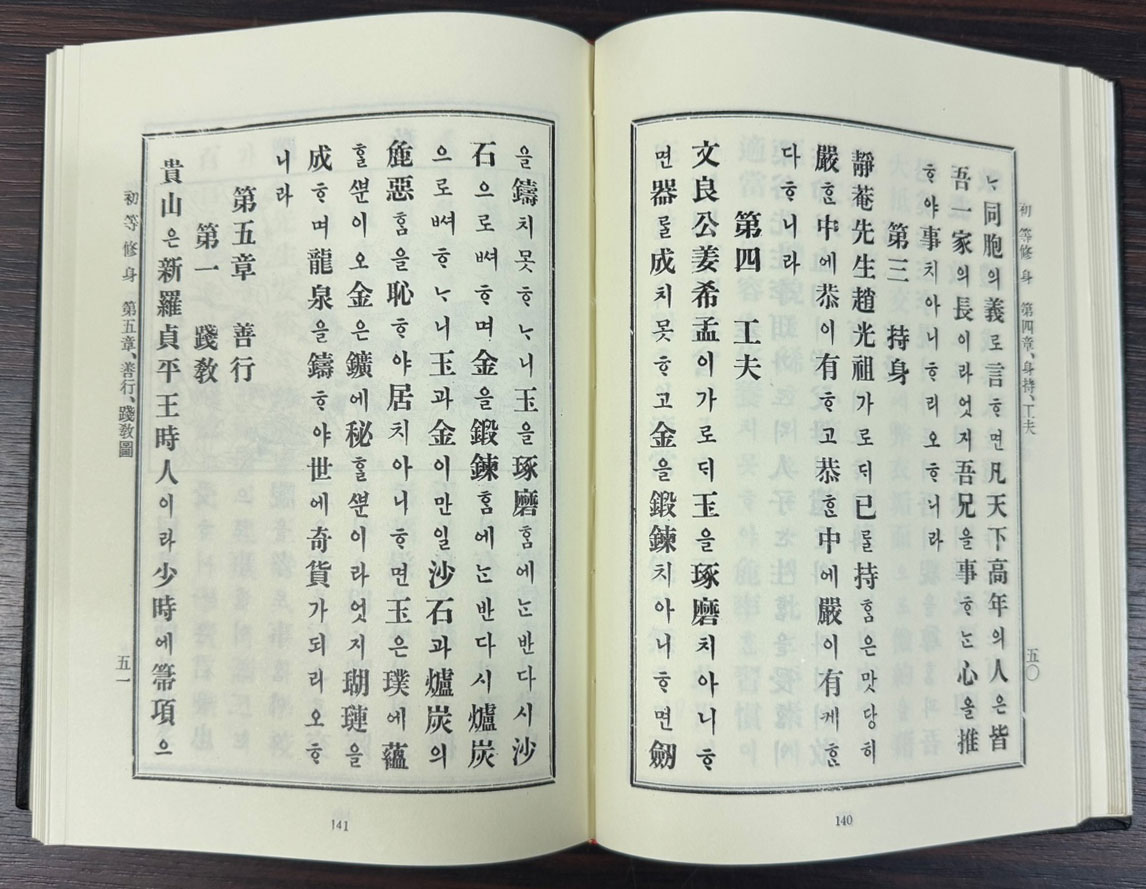 初等修身 第四章、身持、工夫 五〇
ᄂᆞᆫ同胞의義로言ᄒᆞ면凡天下高年의人은皆
吾一家의長이라엇지吾兄을事ᄒᆞᄂᆞᆫ心을推
ᄒᆞ야事치아니ᄒᆞ리오ᄒᆞ니라
第三 持身
靜菴先生趙光祖가ᄀᆞ로ᄃᆡ已ᄅᆞᆯ持ᄒᆞᆷ은맛당히
嚴ᄒᆞᆫ中에恭이有ᄒᆞ고恭ᄒᆞᆫ中에嚴이有케ᄒᆞᆫ
다ᄒᆞ니라
第四 工夫
文良公姜希孟이가로ᄃᆡ玉을琢磨치아니ᄒᆞ
면器ᄅᆞᆯ成치못ᄒᆞ고金을鍛鍊치아니ᄒᆞ면劒
140
을鑄치못ᄒᆞᄂᆞ니玉을琢磨ᄒᆞᆷ에ᄂᆞᆫ반다시沙
石으로ᄡᅥᄒᆞ며金을鍛鍊ᄒᆞᆷ에ᄂᆞᆫ반다시爐炭
으로ᄡᅥᄒᆞᄂᆞ니玉과金이만일沙石과爐炭의
麁惡ᄒᆞᆷ을恥ᄒᆞ야居치아니ᄒᆞ면玉은璞에蘊
ᄒᆞᆯᄲᅮᆫ이오金은鑛에秘ᄒᆞᆯᄲᅮᆫ이라엇지瑚璉을
成ᄒᆞ며龍泉을鑄ᄒᆞ야世에奇貨가되리오ᄒᆞ
니라
第五章 善行
第一 踐敎
貴山은新羅貞平王時人이라少時에箒項으
初等修身 第五章、善行、踐敎圖 五一
141